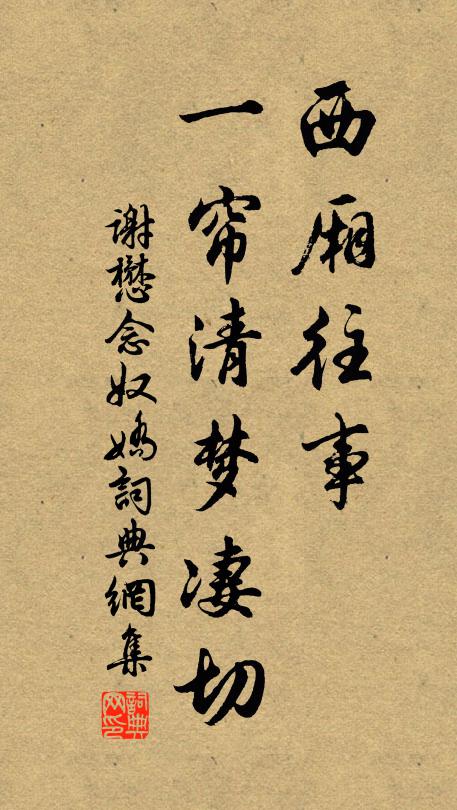 西厢往事
一帘清梦凄切
谢懋念奴娇詞典網集
詞典
网印